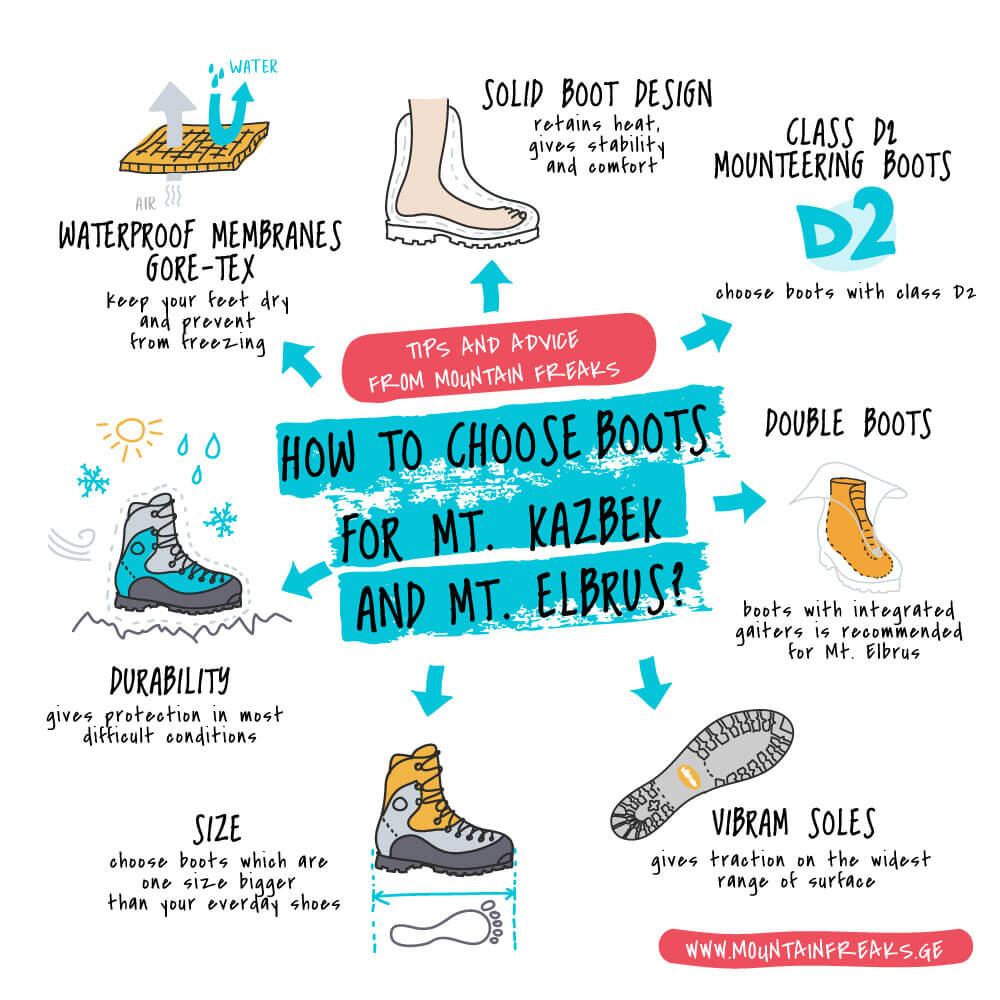 WATER
AIR
WATERPROOF MEMBRANES
GORE-TEX
keep your feet dry
and prevent
from freezing
SOLID BOOT DESIGN
retains heat,
gives stability
and comfort
CLASS D2
MOUNTEERING BOOTS
D2
choose boots with class D2
TIPS AND ADVICE
FROM MOUNTAIN FREAKS
HOW TO CHOOSE BOOTS
FOR MT. KAZBEK
AND MT. ELBRUS?
DOUBLE BOOTS
boots with integrated
gaiters is recommended
for Mt. Elbrus
DURABILITY
gives protection in most
difficult conditions
SIZE
choose boots which are
one size bigger
than your everday shoes
VIBRAM SOLES
gives traction on the widest
range of surface
WWW.MOUNTAINFREAKS.GE